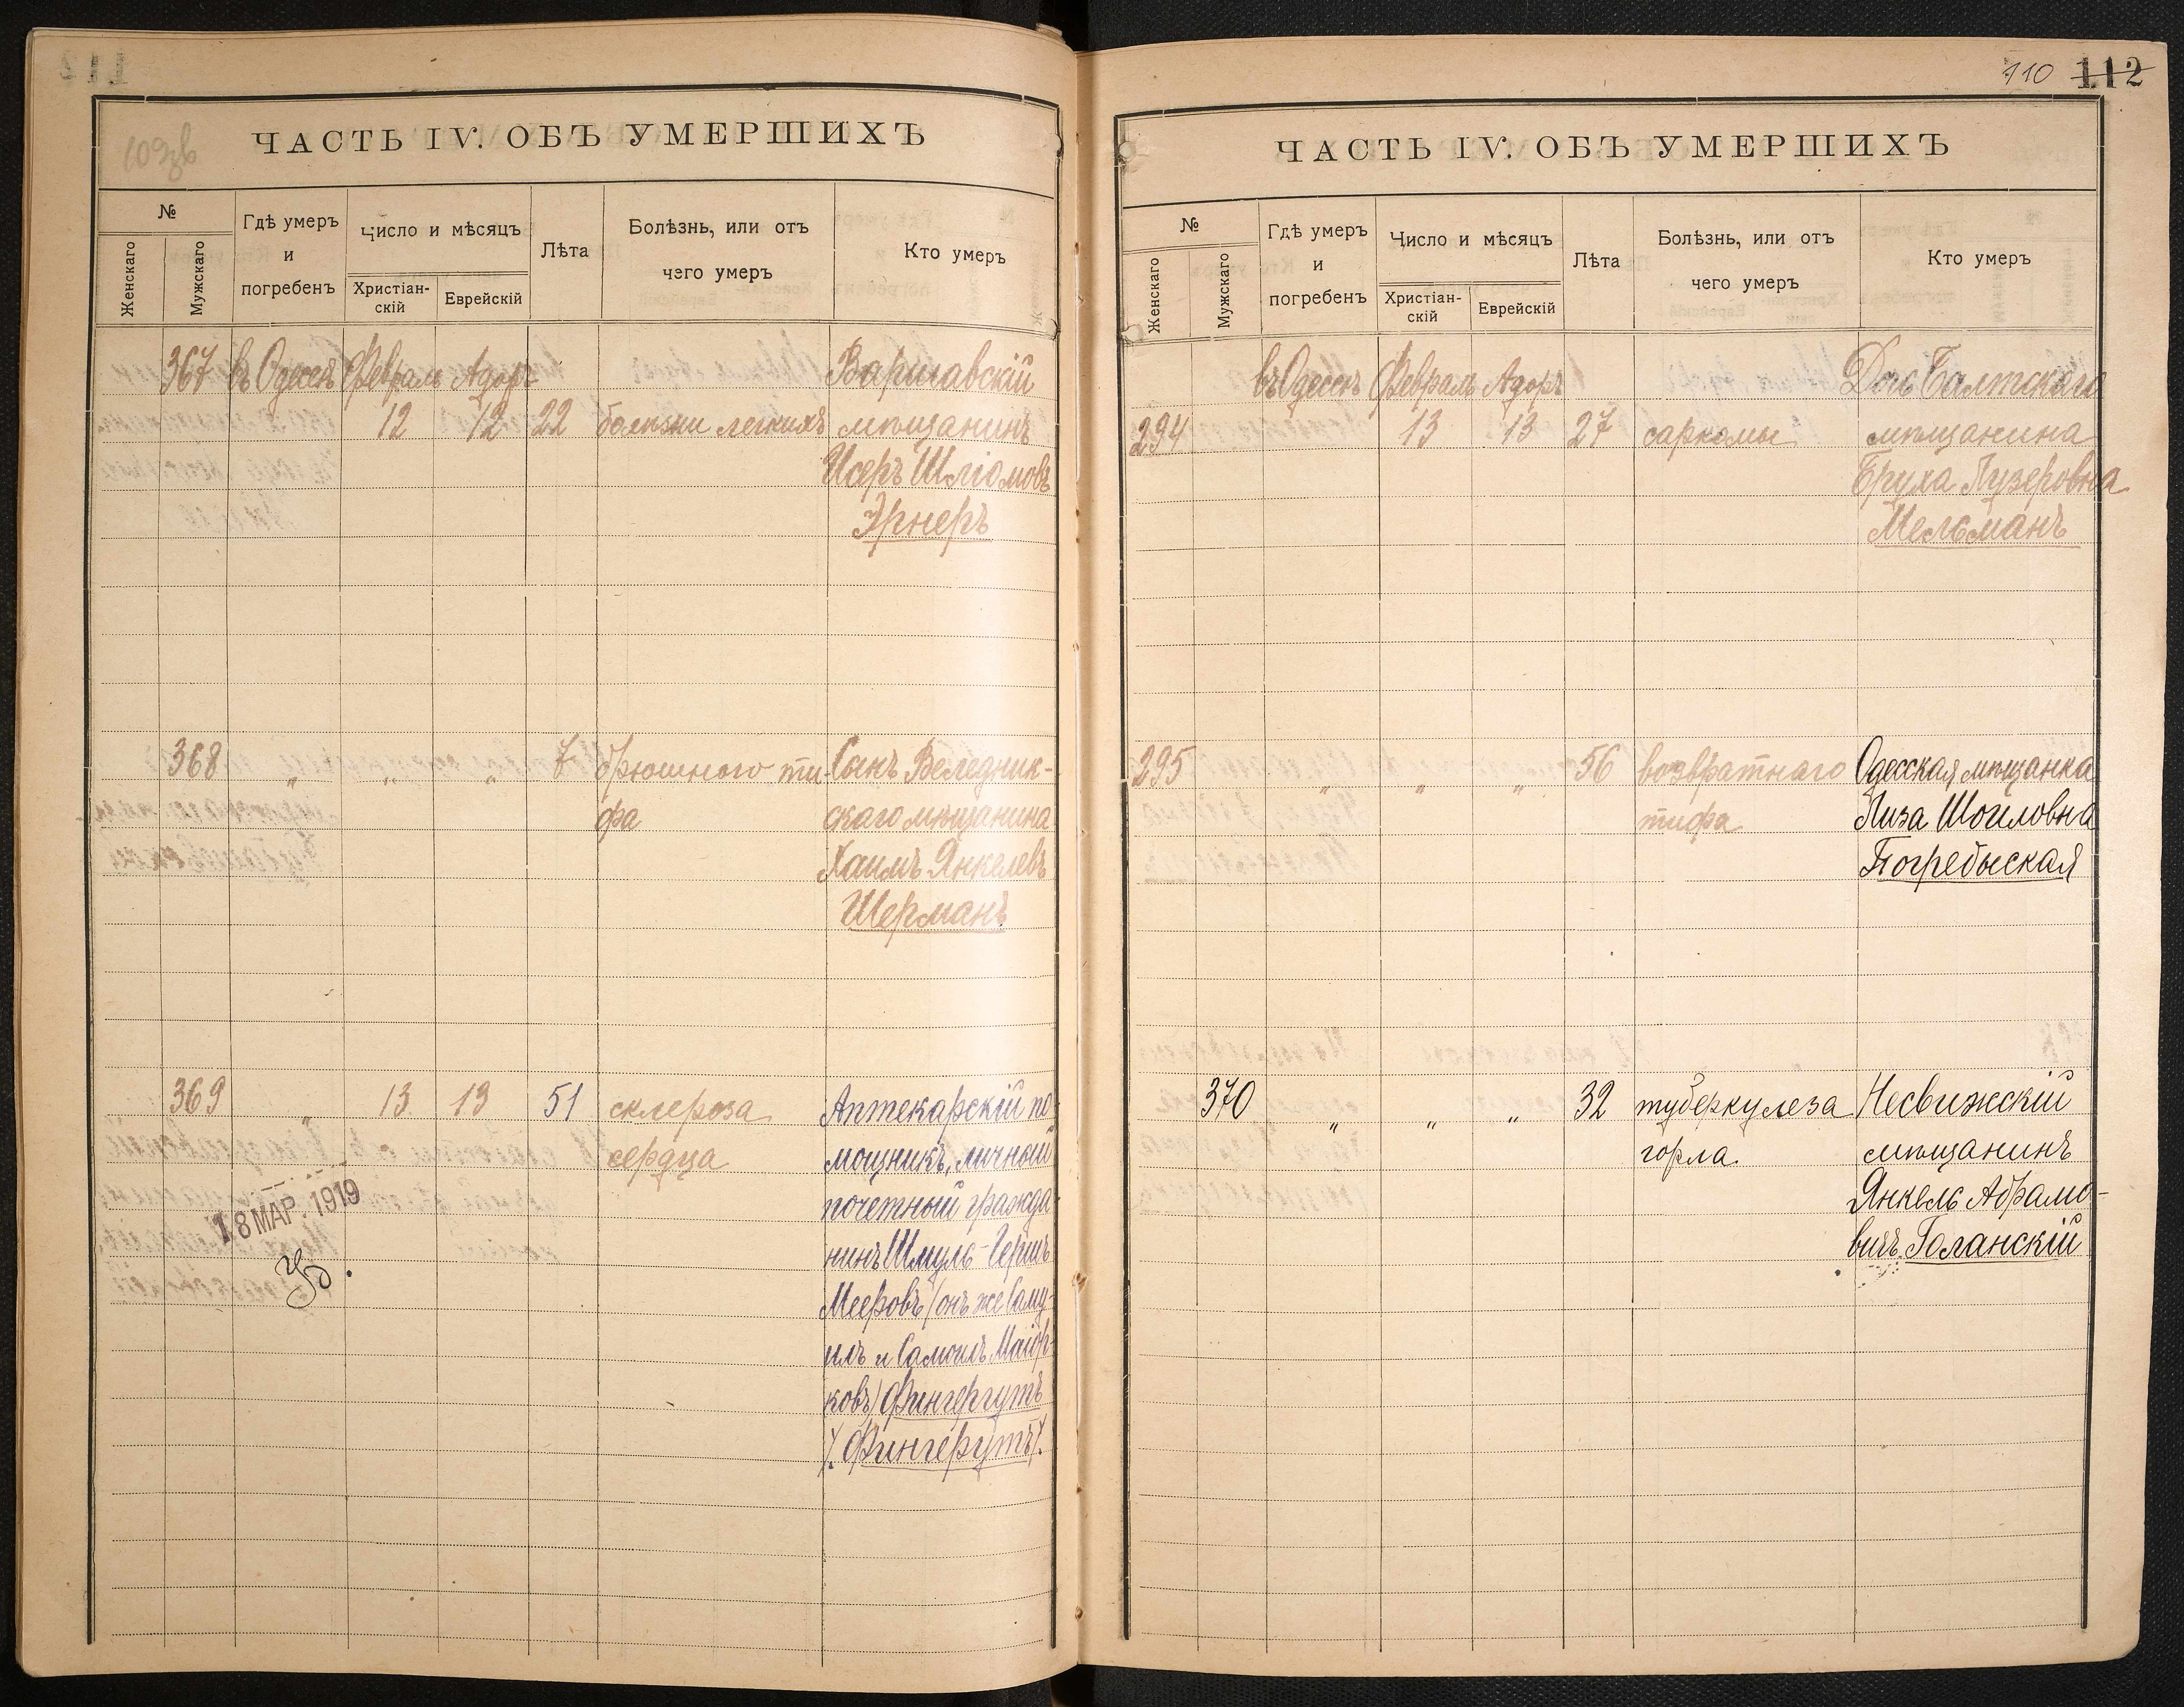 109зв
ЧАСТЬ IV. ОБЪ УМЕРШИХЪ
№
Женскаго
Мужскаго
Гдѣ умеръ
и
погребенъ
Число и мѣсяцъ
Христіан-
скій
Еврейскій
Лѣта
Болѣзнь, или отъ
чего умеръ
Кто умеръ
367 въ Одессѣ Февраль Адоръ Варшавскій
12 12 22 болѣзни легкихъ мѣщанинъ
Исеръ Шліомовъ
Эрнеръ
368 " " " 7 брюшного ти- Сынъ Веледник-
фа скаго мѣщанина
Хаимъ Янкелевъ
Шерманъ
369 " 13 13 51 склероза Аптекарскій по-
сердца мощникъ, личный
почетный гражда
нинъ Шмуль-Гершъ
Мееровъ (онъ же Саму-
илъ и Самоилъ Маіор-
ковъ) Фингергутъ
/. Фингерутъ /.
18 МАР. 1919
110 112
ЧАСТЬ IV. ОБЪ УМЕРШИХЪ
№
Женскаго
Мужскаго
Гдѣ умеръ
и
погребенъ
Число и мѣсяцъ
Христіан-
скій
Еврейскій
Лѣта
Болѣзнь, или отъ
чего умеръ
Кто умеръ
въ Одессѣ Февраль Адоръ Дочь Балтскаго
294 13 13 27 саркомы мѣщанина
Бруха Лузеровна
Мельманъ
295 " " " 56 возвратнаго Одесская мѣщанка
тифа Лиза Шоиловна
Погребыская
370 " " " 32 туберкулеза Несвижскій
горла мѣщанинъ
Янкель Абрамо-
вичъ Голанскій